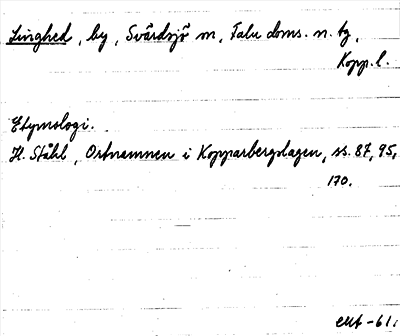 Linghed, by, Svärdsjö sn, Falu doms. n. tg,
Kopp. l.
Etymologi.
H. Ståhl, Ortnamnen i Kopparbergslagen, ss. 87, 95,
170.
-61.